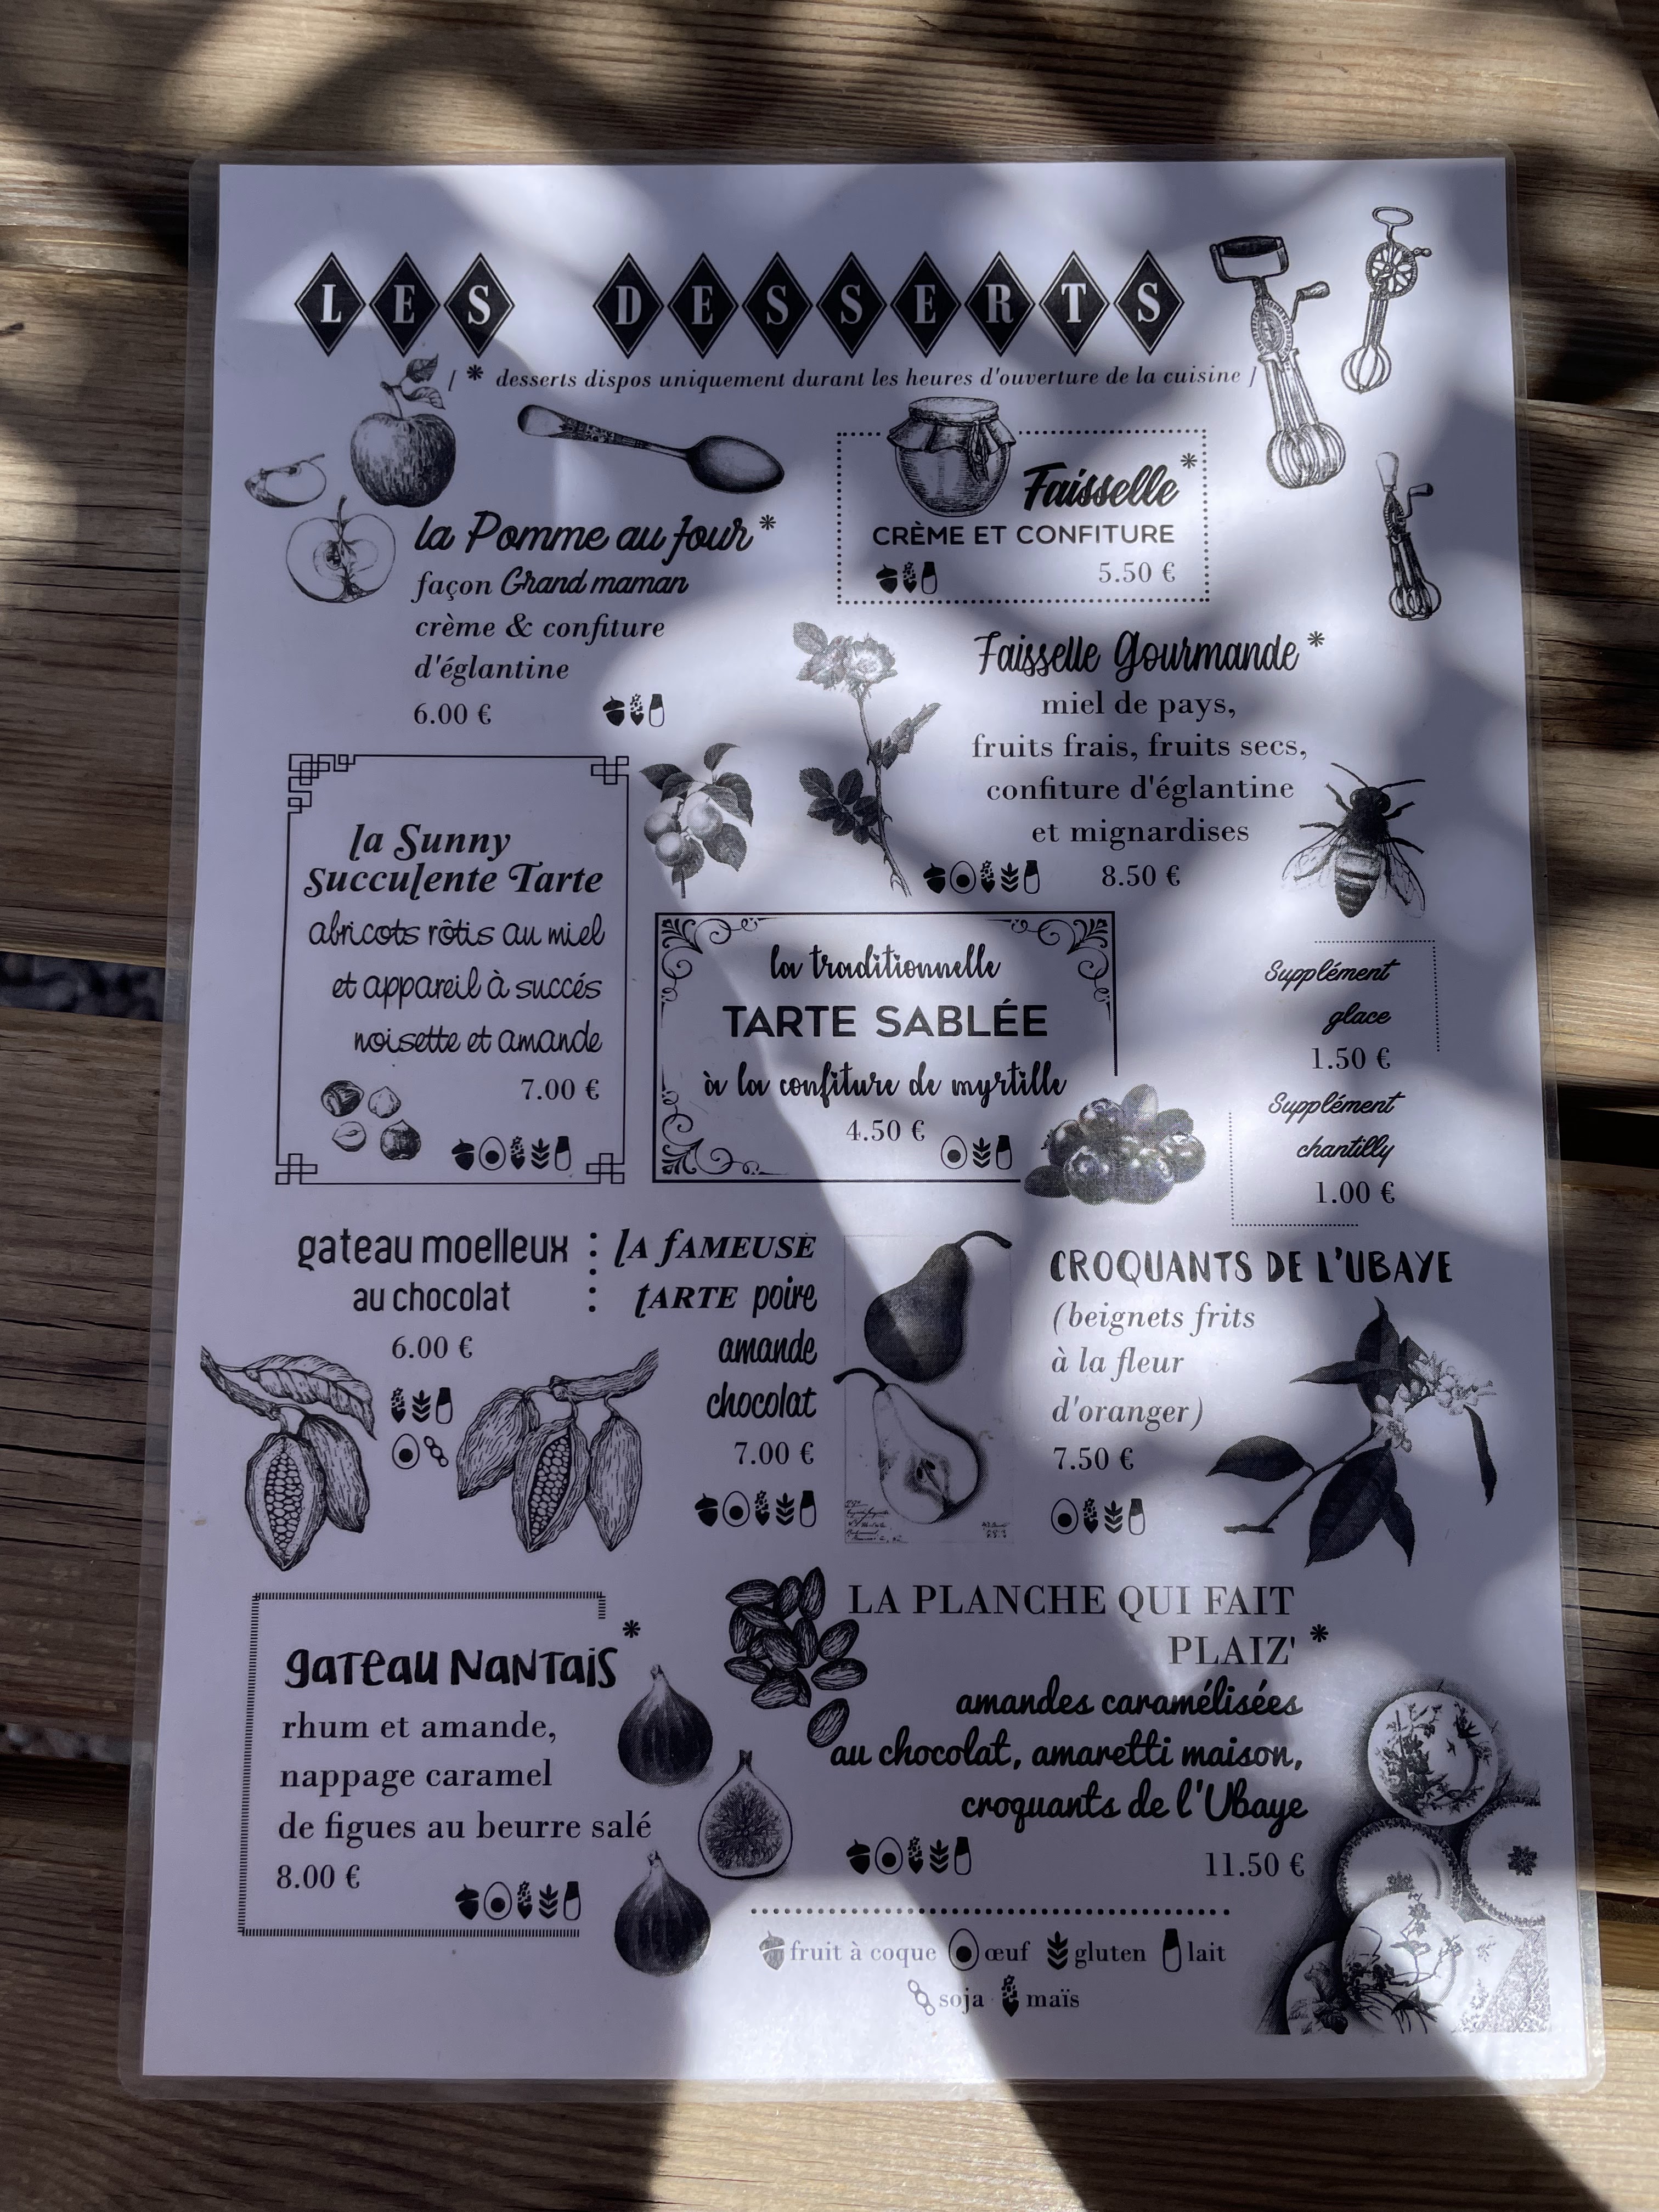 LES DESSERTS
[ * desserts dispos uniquement durant les heures d'ouverture de la cuisine ]
la Pomme au four *
façon Grand maman
crème & confiture
d'églantine
6.00 €
Faisselle *
CRÈME ET CONFITURE
5.50 €
Faisselle Gourmande *
miel de pays,
fruits frais, fruits secs,
confiture d'églantine
et mignardises
8.50 €
la Sunny
succulente Tarte
abricots rôtis au miel
et appareil à succés
noisette et amande
7.00 €
la traditionnelle
TARTE SABLÉE
à la confiture de myrtille
4.50 €
Supplément
glace
1.50 €
Supplément
chantilly
1.00 €
gateau moelleux
au chocolat
6.00 €
LA FAMEUSE
TARTE poire
amande
chocolat
7.00 €
CROQUANTS DE L'UBAYE
(beignets frits
à la fleur
d'oranger)
7.50 €
gateau Nantais *
rhum et amande,
nappage caramel
de figues au beurre salé
8.00 €
LA PLANCHE QUI FAIT
PLAIZ' *
amandes caramélisées
au chocolat, amaretti maison,
croquants de l'Ubaye
11.50 €
fruit à coque œuf gluten lait
soja maïs